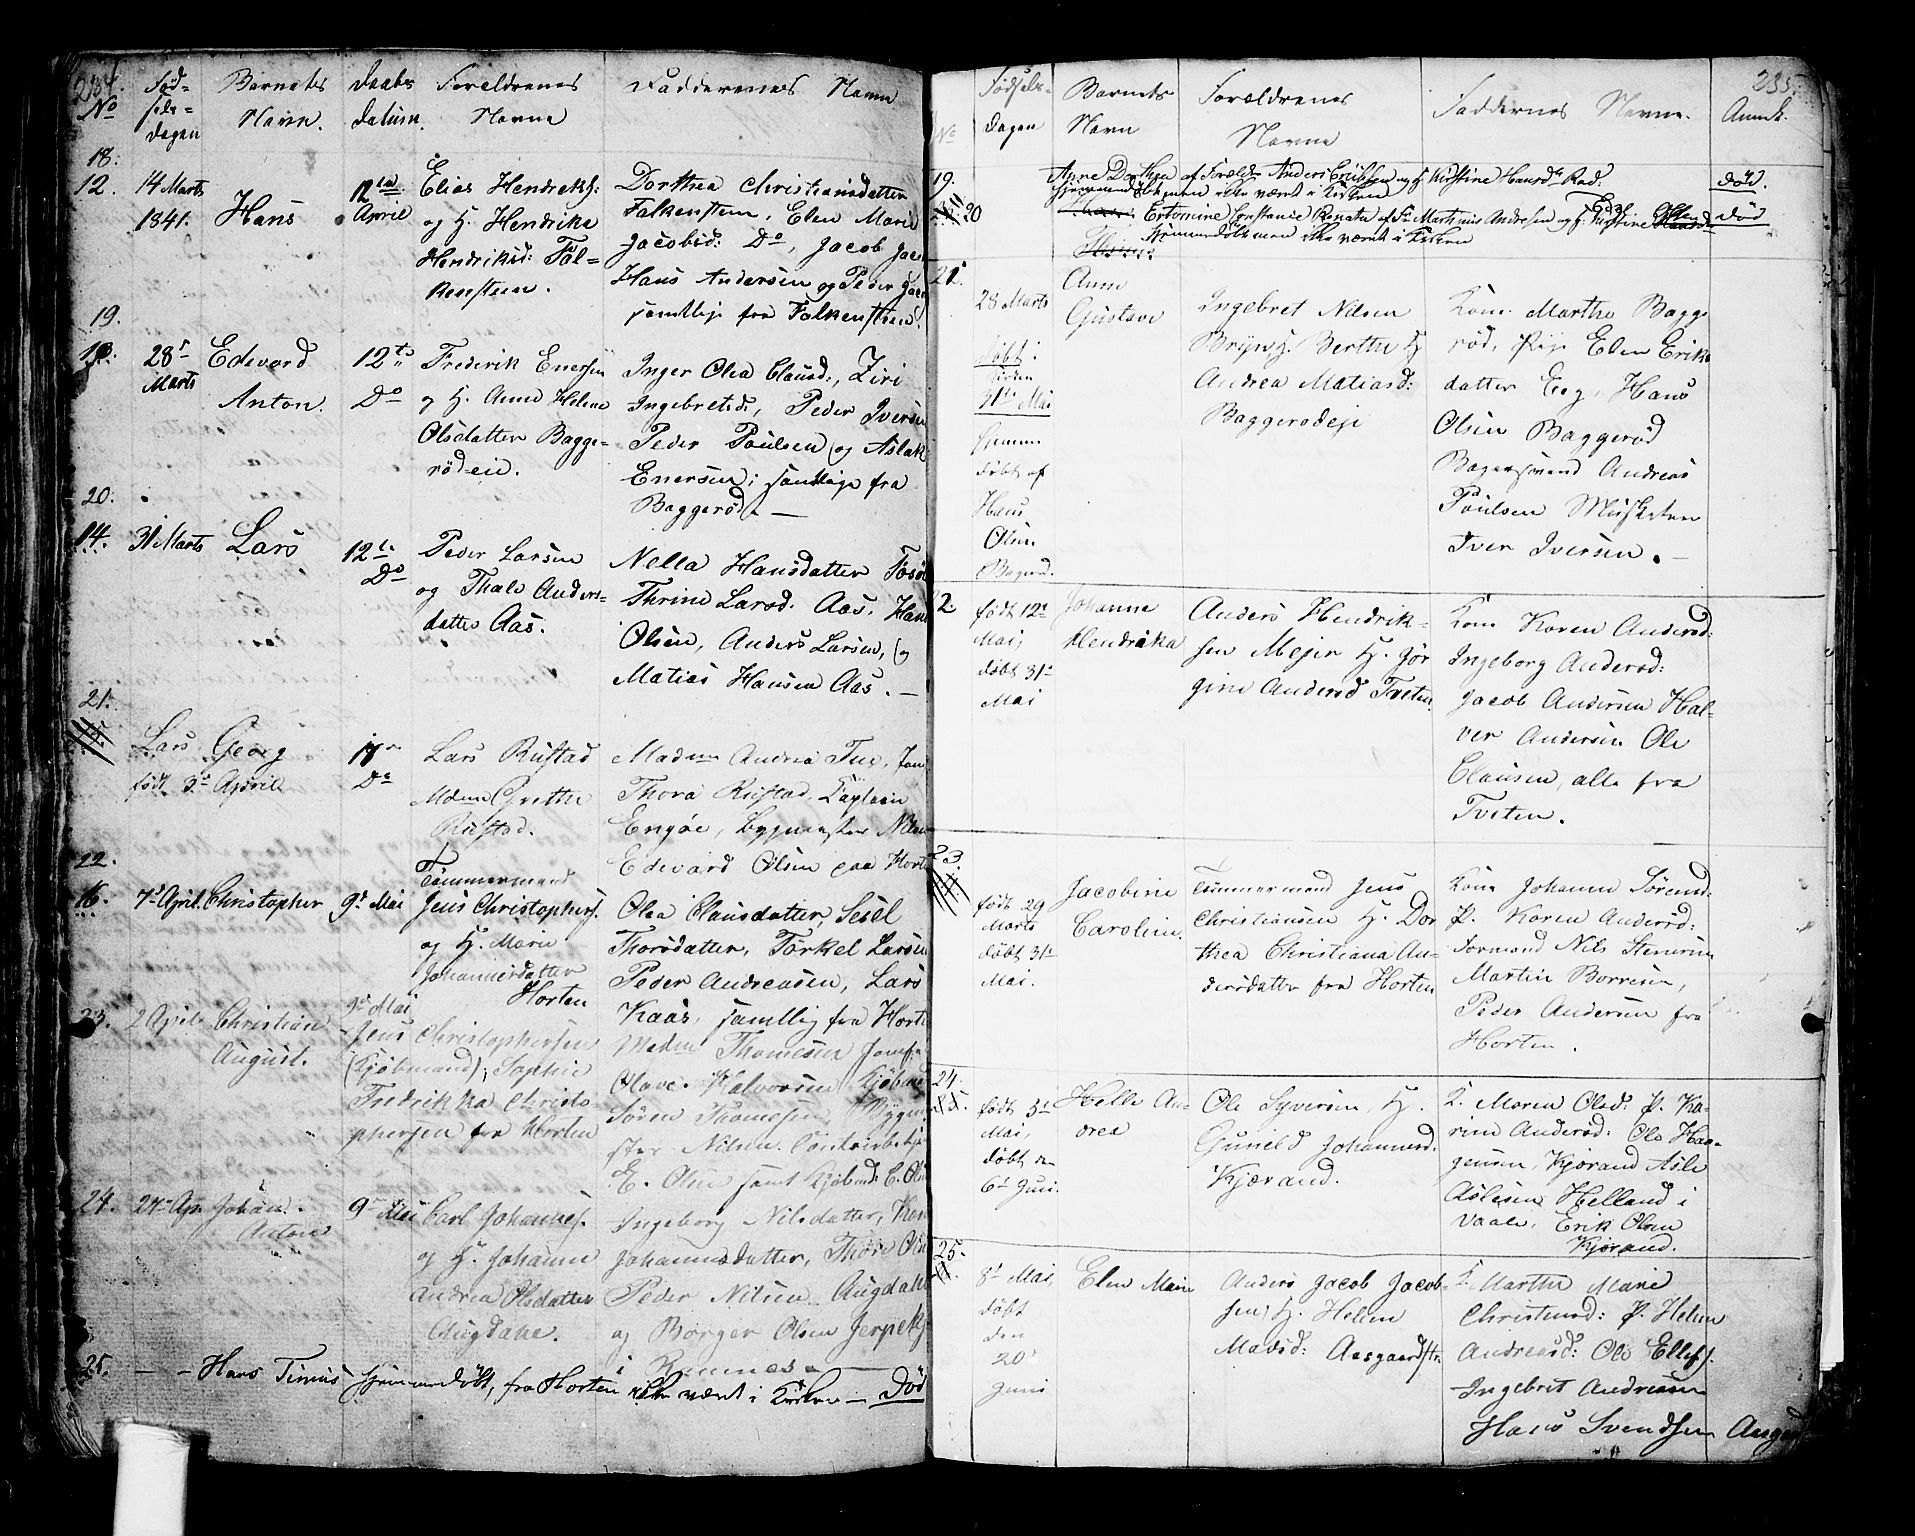 234.
No
Fød-
sels-
dagen
Barnets
Navn.
Daabs
datum.
Forældrenes
Navne
Faddernes Navne
18.
12.
14 Marts
1841.
Hans
12te
April
Elias Hendriks:
og H. Hendrika
Hendriksd: Fal-
kensteen.
Dorthea Christiansdatter
Falkensteen, Elen Marie
Jacobsd: Do, Jacob
Hans Andersen og Peder
samtlige fra Falkensteen.
19.
13.
28de
Marts
Edevard
Anton.
12te
Do
Frederik Enersen
og H. Anne Helene
Olsdatter Bagge-
rød-eie.
Inger Olea Clausd:, Ziri
Ingebretsd:, Peder Iversen
Peder Poulsen og Aslak
Enersen; samtlige fra
Baggerød. —
20.
14.
31 Marts
Lars
12te
Do
Peder Larsen
og Thale Anders-
datter Aas.
Nella Hansdatter
Thrine Larsd. Aas, Hans
Olsen, Anders Larsen, og
Matias Hansen Aas. —
21.
15.
Lars Georg
født 3de April
Do
Lars Rustad
Mdme Grethe
Rustad.
Madme Andrea Tue, Jom
Thora Rustad, Captain
Engøe, Bygmester Nilsen
Edevard Olsen paa Horten
22.
16.
7de April
Christopher
9de Mai
Tømmermand
Jens Christophers:
og H. Maren
Johannesdatter
Horten
Olea Clausdatter, Sesel
Thorsdatter, Torkel Larsen
Peder Andreasen, Lars
Kaas, samtlig fra Horten
23.
2 April
Christian
August.
9de Mai
Jens Christophersen
(Kjøbmand); Sophie
Fredrikka Christo
phersen fra Horten
Madm Thomesen Jomf:
Olave Halvorsen Kjøbm
Søren Thomesen, Bygm
ster Nilsen.
E. Olsen samt Kjøbmd: C. Olsen
24.
24de Apr.
Johan
Anton
9de Mai
Carl Johannes:
og H. Johanne
Andrea Olsdatter
Augdahe.
Ingeborg Nilsdatter, Karen
Johannesdatter, Thore Olsen
Peder Nilsen Augdahe
og Borger Olsen
i Ramnes.
25.
— - Hans Tinius hjemmedøbt, fra Horten ikke været i Kirken — Død
235.
No
Fødsels-
dagen
Barnets
Navn
Forældrenes
Navne
Faddernes Navne.
Anmk.
19.
Anne Dorthea af Foræld: Anders Erichsen og H. Kirstine Hansdr Rød:
død.
hjemmedøbt men ikke været i Kirken
20
Ertomine Constance Renata af F: Martinus Andresen og H. Kirstine Olsen
død
hjemmedøbt men ikke været i Kirken
21.
28 Marts
døbt i
Kirken
31te Mai
hjemme
døbt af
Hans
Olsen
Bagerød.
Anne
Gustave
Ingebret Nilsen
Bryn, H. Berthe
Andrea Matiasd:
Baggerødeje
Kone Marthe Bagge
rød, Pige Elen Eriks
datter Eeg, Hans
Olsen Baggerød
Andreas
Poulsen Musketeer
Iver Iversen. —
22
født 12te
Mai,
døbt 31te
Mai
Johanne
Hendrikka
Anders Hendrik-
sen Mejer H. Jør
gine Andersd Tveten.
Kone Karen Andersd:
Ingeborg Andersd:
Jacob Andersen Hal-
vor Andersen Ole
Clausen, alle fra
Tveten.
23.
født 29
Marts
døbt 31te
Mai.
Jacobine
Caroline.
Tømmermand Jens
Christiansen H. Dor
thea Christiana An-
dersdatter fra Horten
Kone Johanne Sørensd:
P. Karen Andersd:
Formand Nils Stenersen
Martin Borresen,
Peder Andersen fra
Horten.
24.
født 5te
Mai,
døbt den
6te Juni.
Helle An-
drea
Ole Syversen, H.
Gunild Johannesd:
Kjærand.
K. Maren Olsd: P. Ka-
rine Andersd: Ole Haa-
gensen, Kjærand Asle
Aslesen Helland i
Vaale, Erik Olsen
Kjærand.
25.
8de Mai,
døbt
den
20de
Juni
Elen Marie
Anders Jacob Jacob-
sen, H. Helene
Madsd: Aasgaardstr.
K. Marthe Marie
Christensd: P. Helene
Andreasd: Ole Ellefs:
Ingebret Andreasen
Hans Svendsen